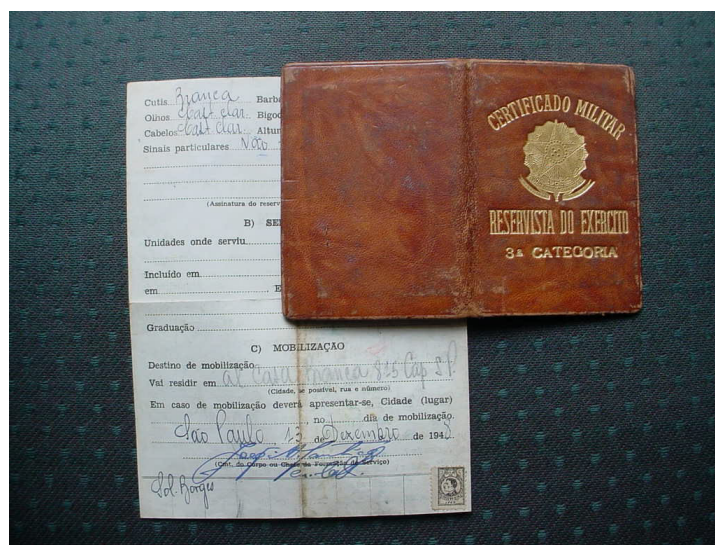 Cutis Branca Barb
Olhos Cast. Clar. Bigod
Cabelos Cast. Clar. Altur
Sinais particulares Não
(Assinatura do reserv
B) SE
Unidades onde serviu
Incluído em
em E
Graduação
C) MOBILIZAÇÃO
Destino de mobilização
Vai residir em al Casa Branca 813 Cap S.P.
(Cidade, se possível, rua e número)
Em caso de mobilização deverá apresentar-se, Cidade (lugar)
no dia de mobilização.
São Paulo 13 de Dezembro de 194
(Cmt. do Corpo ou Chefe da Formação de Serviço)
Sd. Borges
CERTIFICADO MILITAR
RESERVISTA DO EXERCITO
3ª CATEGORIA